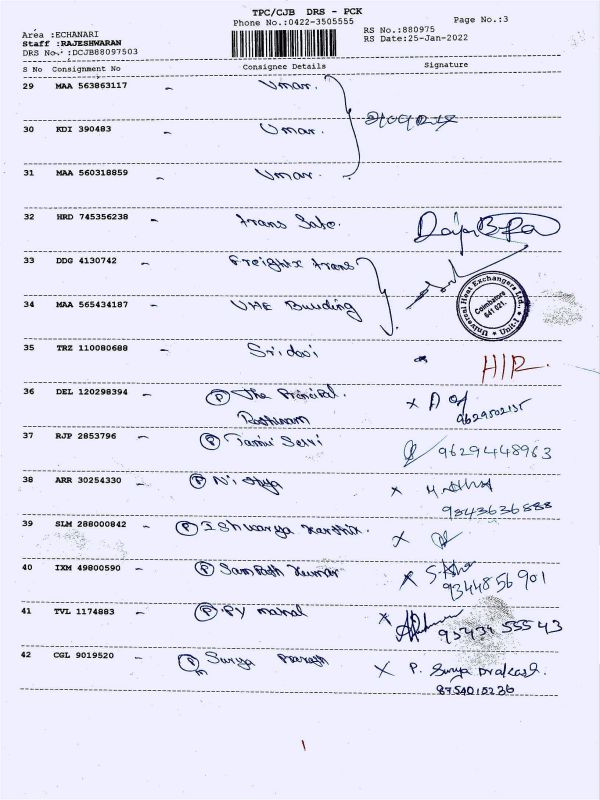 TPC/CJB DRS - PCK
Phone No.:0422-3505555
Page No.:3
Area :ECHANARI
Staff :RAJESHWARAN
DRS No. :DCJB88097503
RS No.:880975
RS Date:25-Jan-2022
S No Consignment No Consignee Details Signature
29 MAA 563863117 - Umar.
30 KDI 390483 - Umar.
31 MAA 560318859 - Umar.
32 HRD 745356238 - trans Safe.
33 DDG 4130742 - Freightx trans
34 MAA 565434187 - UHE Building
Universal Heat Exchangers Ltd., Unit-I
Coimbatore
641 021.
35 TRZ 110080688 - Sridevi HIR.
36 DEL 120298394 - P The Principal. X
Rathinam 9629502135
37 RJP 2853796 - P Tamil Selvi 9629448963
38 ARR 30254330 - P Nithya X
9843636888
39 SLM 288000842 - P Ishwarya Karthik. X
40 IXM 49800590 - P Sampath Kumar X
9344856901
41 TVL 1174883 - P PY mahal X
9543455543
42 CGL 9019520 - P Surya Prakash X P. Surya Prakash.
8754015236
1